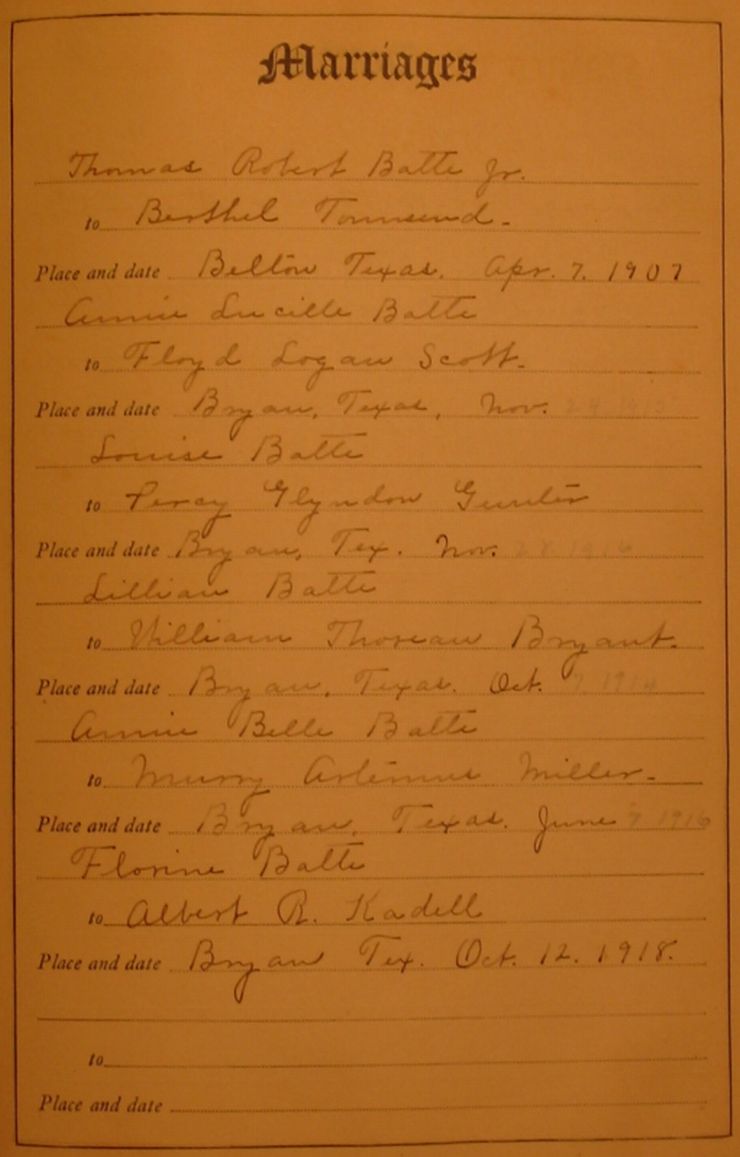 Marriages
Thomas Robert Batte Jr.
to Berthel Townsend.
Place and date Belton Texas. Apr. 7. 1907
Annie Lucille Batte
to Floyd Logan Scott.
Place and date Bryan, Texas, Nov.
Louise Batte
to Percy Glyndon Gunter
Place and date Bryan, Tex. Nov. 28 1916
Lillian Batte
to William Thoreau Bryant.
Place and date Bryan, Texas. Oct. 7 1914
Annie Belle Batte
to Murry Artemus Miller.
Place and date Bryan, Texas. June 7 1916
Florine Batte
to Albert R. Kadell
Place and date Bryan Tex. Oct. 12. 1918.
to
Place and date